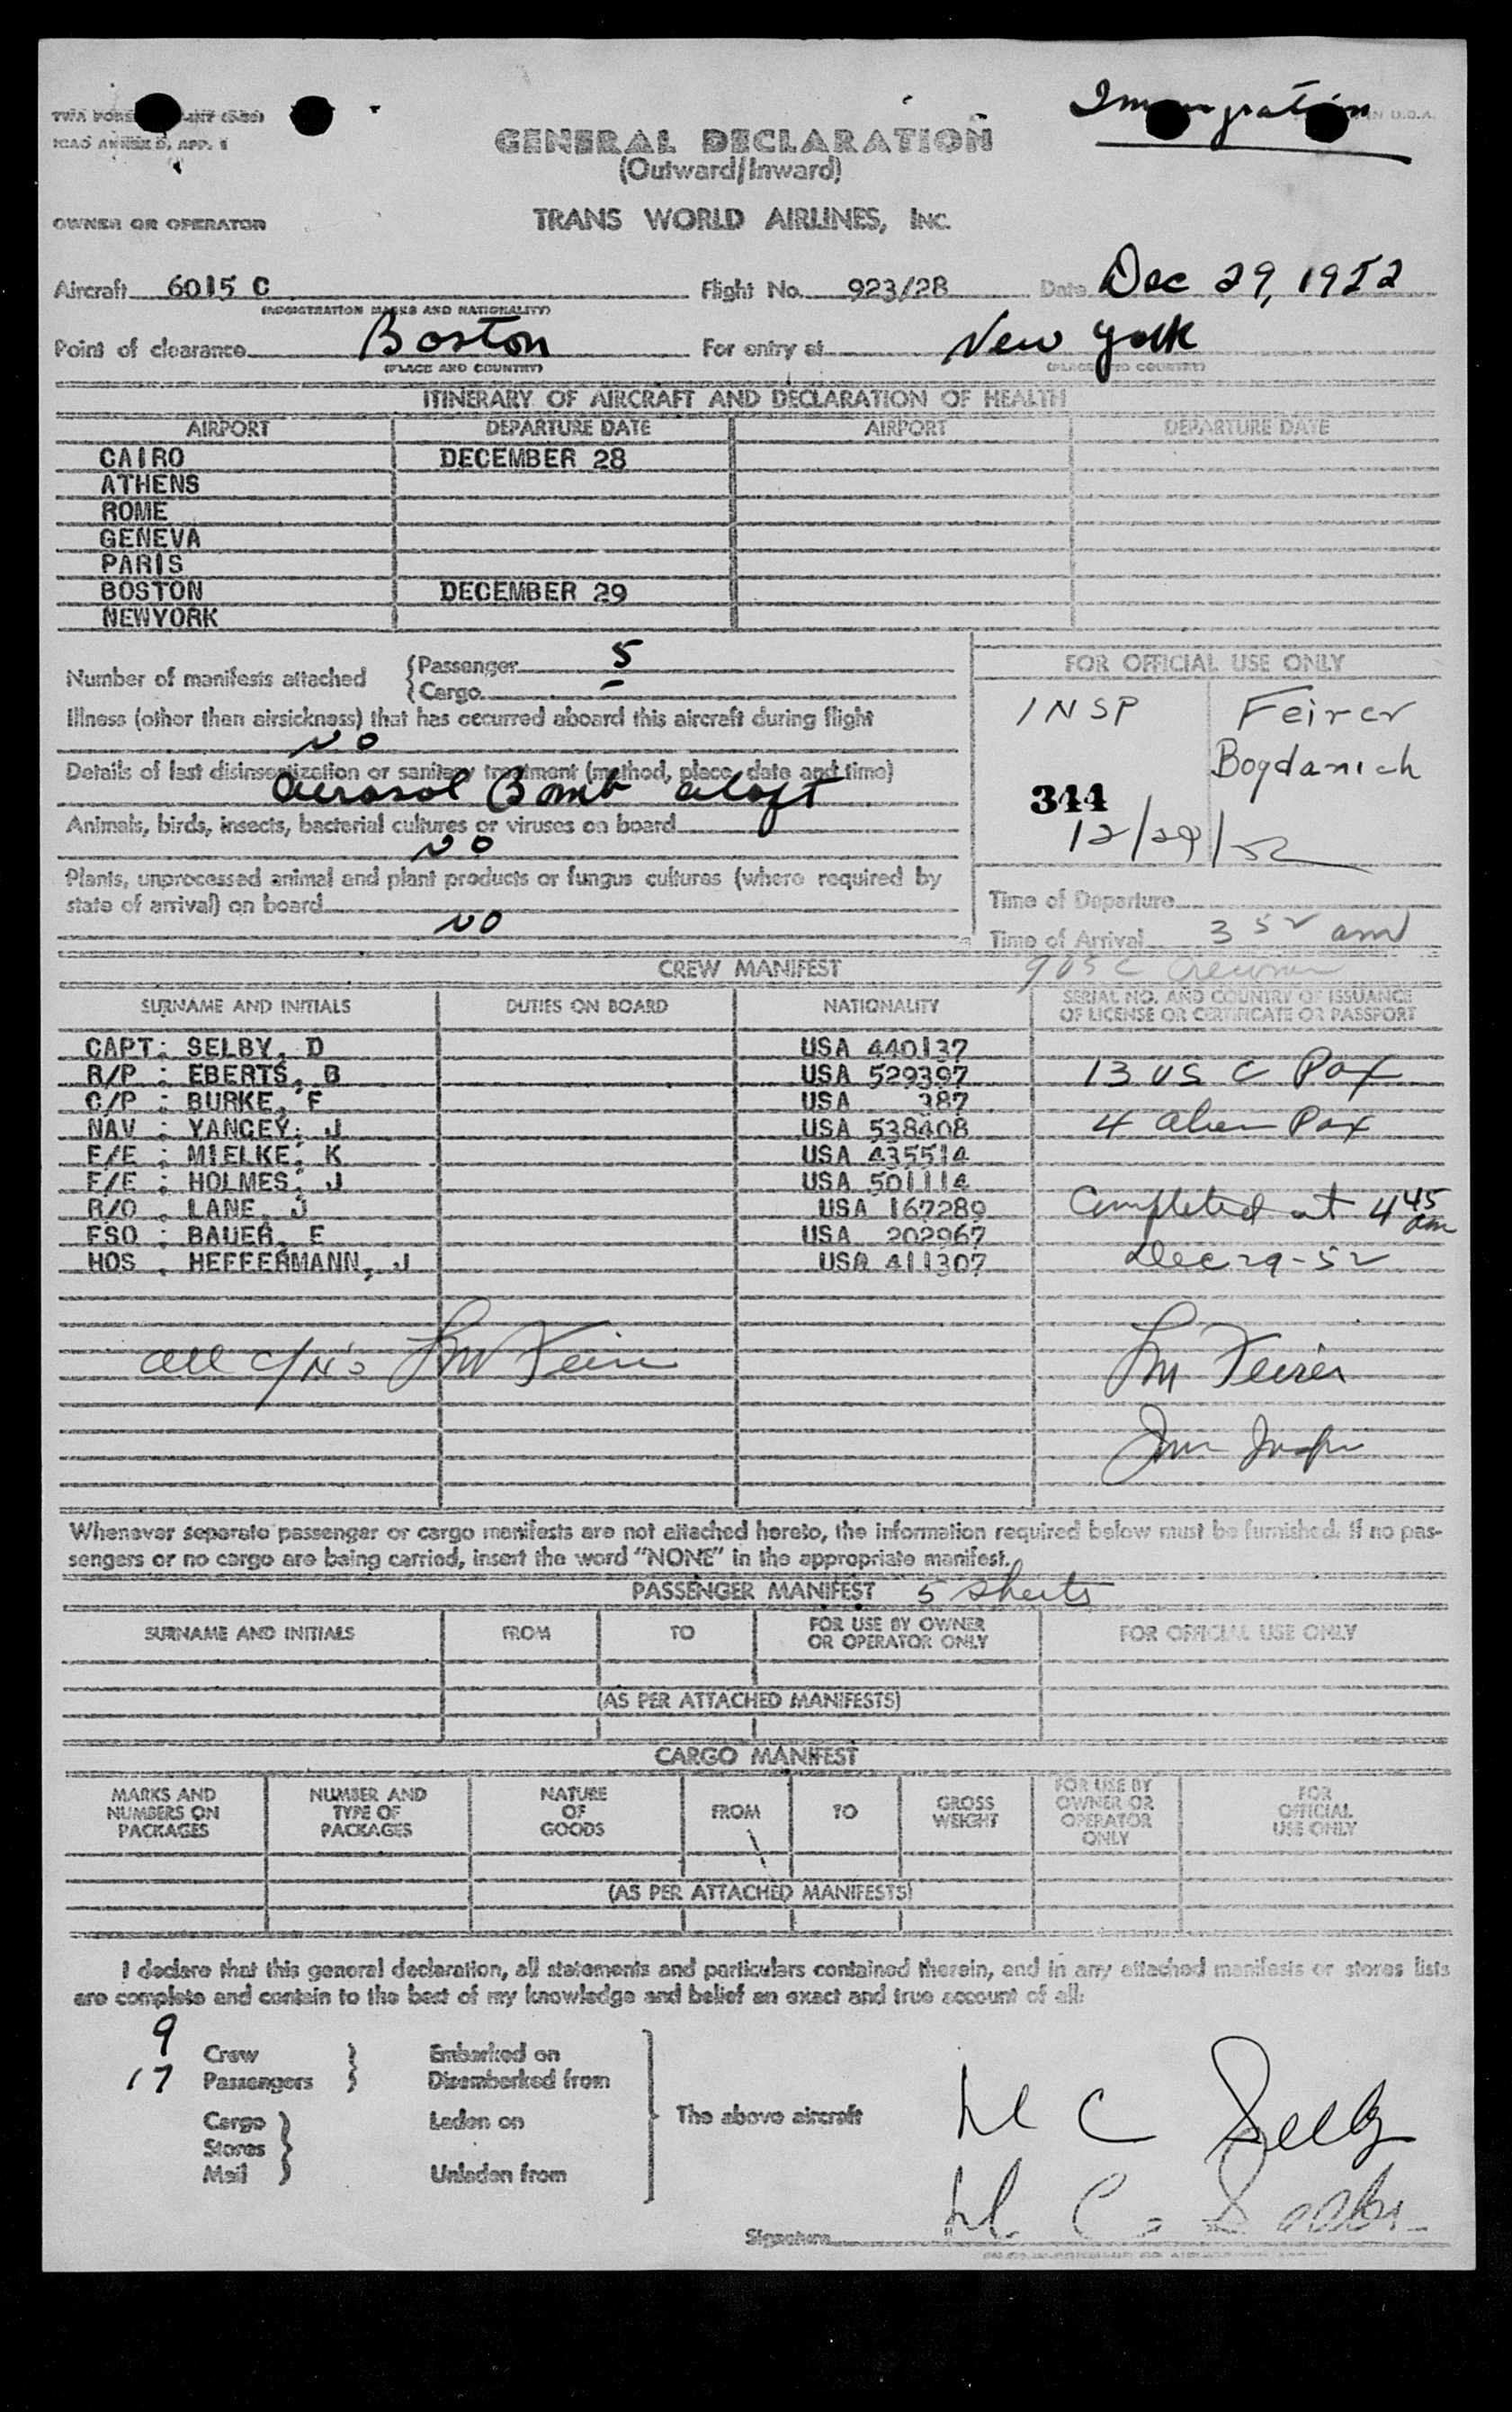 Immigration
ICAO ANNEX 9, APP. 1
GENERAL DECLARATION
(Outward/Inward)
OWNER OR OPERATOR TRANS WORLD AIRLINES, INC.
Aircraft 6015 C Flight No. 923/28 Date Dec 29, 1952
(REGISTRATION MARKS AND NATIONALITY)
Point of clearance Boston For entry at New York
(PLACE AND COUNTRY) (PLACE AND COUNTRY)
ITINERARY OF AIRCRAFT AND DECLARATION OF HEALTH
AIRPORT DEPARTURE DATE AIRPORT DEPARTURE DATE
CAIRO DECEMBER 28
ATHENS
ROME
GENEVA
PARIS
BOSTON DECEMBER 29
NEWYORK
Number of manifests attached
Passenger 5
Cargo –
Illness (other than airsickness) that has occurred aboard this aircraft during flight
NO
Details of last disinsectization or sanitary treatment (method, place, date and time)
Aerosol Bomb aloft
Animals, birds, insects, bacterial cultures or viruses on board
NO
Plants, unprocessed animal and plant products or fungus cultures (where required by
state of arrival) on board
NO
FOR OFFICIAL USE ONLY
INSP Feirer
Bogdanich
344
12/29/52
Time of Departure
Time of Arrival 3 52 am
9 US C Crewmen
CREW MANIFEST
SURNAME AND INITIALS DUTIES ON BOARD NATIONALITY SERIAL NO. AND COUNTRY OF ISSUANCE
OF LICENSE OR CERTIFICATE OR PASSPORT
CAPT: SELBY, D USA 440137
R/P : EBERTS, B USA 529397 13 US C Pax
C/P : BURKE, F USA 387
NAV : YANCEY, J USA 538408 4 alien Pax
F/E : MIELKE, K USA 435514
F/E : HOLMES, J USA 501114
R/O . LANE, J USA 167289 Completed at 4 45 am
FSO : BAUER, E USA 202967
HOS . HEFFERMANN, J USA 411307 Dec 29-52
all c/N's LM Feirer LM Feirer
Imm Inspr
Whenever separate passenger or cargo manifests are not attached hereto, the information required below must be furnished. If no pas-
sengers or no cargo are being carried, insert the word "NONE" in the appropriate manifest.
PASSENGER MANIFEST 5 sheets
SURNAME AND INITIALS FROM TO FOR USE BY OWNER
OR OPERATOR ONLY FOR OFFICIAL USE ONLY
(AS PER ATTACHED MANIFESTS)
CARGO MANIFEST
MARKS AND
NUMBERS ON
PACKAGES
NUMBER AND
TYPE OF
PACKAGES
NATURE
OF
GOODS
FROM
TO
GROSS
WEIGHT
FOR USE BY
OWNER OR
OPERATOR
ONLY
FOR
OFFICIAL
USE ONLY
(AS PER ATTACHED MANIFESTS)
I declare that this general declaration, all statements and particulars contained therein, and in any attached manifests or stores lists
are complete and contain to the best of my knowledge and belief an exact and true account of all:
9 Crew Embarked on
17 Passengers Disembarked from
Cargo Laden on The above aircraft
Stores
Mail Unladen from
D C Selby
Signature D. C. Selby